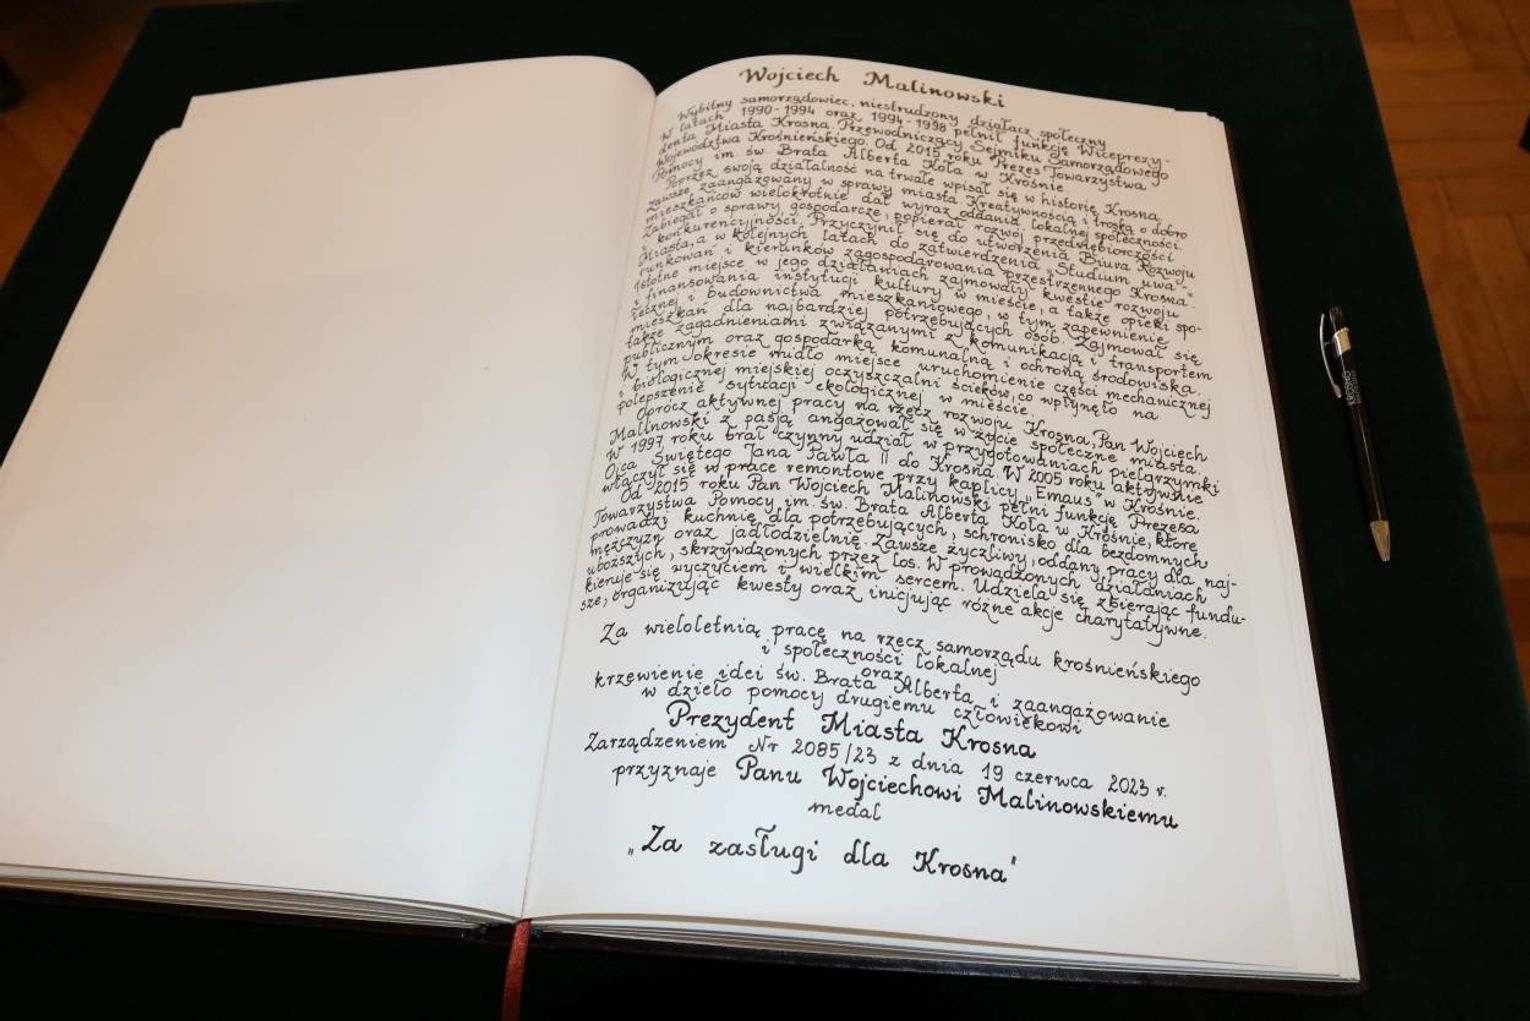 Wojciech Malinowski
Wybitny samorządowiec, niestrudzony działacz społeczny
W latach 1990-1994 oraz 1994-1998 pełnił funkcję Wiceprezy-
denta Miasta Krosna Przewodniczący Sejmiku Samorządowego
Województwa Krośnieńskiego. Od 2015 roku Prezes Towarzystwa
Pomocy im. św. Brata Alberta Koła w Krośnie.
Poprzez swoją działalność na trwałe wpisał się w historię Krosna.
Zawsze zaangażowany w sprawy miasta Kreatywnością i troską o dobro
mieszkańców wielokrotnie dał wyraz oddania lokalnej społeczności.
Zabiegał o sprawy gospodarcze, popierał rozwój przedsiębiorczości
i konkurencyjności. Przyczynił się do utworzenia Biura Rozwoju
Miasta, a w kolejnych latach do zatwierdzenia „Studium uwa-
runkowań i kierunków zagospodarowania przestrzennego Krosna".
Istotne miejsce w jego działaniach zajmowały kwestie rozwoju
i finansowania instytucji kultury w mieście, a także opieki spo-
łecznej i budownictwa mieszkaniowego, w tym zapewnienie
mieszkań dla najbardziej potrzebujących osób. Zajmował się
także zagadnieniami związanymi z komunikacją i transportem
publicznym oraz gospodarką komunalną i ochroną środowiska.
W tym okresie miało miejsce uruchomienie części mechanicznej
i biologicznej miejskiej oczyszczalni ścieków, co wpłynęło na
polepszenie sytuacji ekologicznej w mieście.
Oprócz aktywnej pracy na rzecz rozwoju Krosna, Pan Wojciech
Malinowski z pasją angażował się w życie społeczne miasta.
W 1997 roku brał czynny udział w przygotowaniach pielgrzymki
Ojca Świętego Jana Pawła II do Krosna. W 2005 roku aktywnie
włączył się w prace remontowe przy kaplicy „Emaus" w Krośnie.
Od 2015 roku Pan Wojciech Malinowski pełni funkcję Prezesa
Towarzystwa Pomocy im. św. Brata Alberta Koła w Krośnie, które
prowadzi kuchnię dla potrzebujących, schronisko dla bezdomnych
mężczyzn oraz jadłodzielnię. Zawsze życzliwy, oddany pracy dla naj-
uboższych, skrzywdzonych przez los. W prowadzonych działaniach
kieruje się wyczuciem i wielkim sercem. Udziela się zbierając fundu-
sze, organizując kwesty oraz inicjując różne akcje charytatywne.
Za wieloletnią pracę na rzecz samorządu krośnieńskiego
i społeczności lokalnej
oraz
krzewienie idei św. Brata Alberta i zaangażowanie
w dzieło pomocy drugiemu człowiekowi
Prezydent Miasta Krosna
Zarządzeniem Nr 2085/23 z dnia 19 czerwca 2023 r.
przyznaje Panu Wojciechowi Malinowskiemu
medal
„Za zasługi dla Krosna"